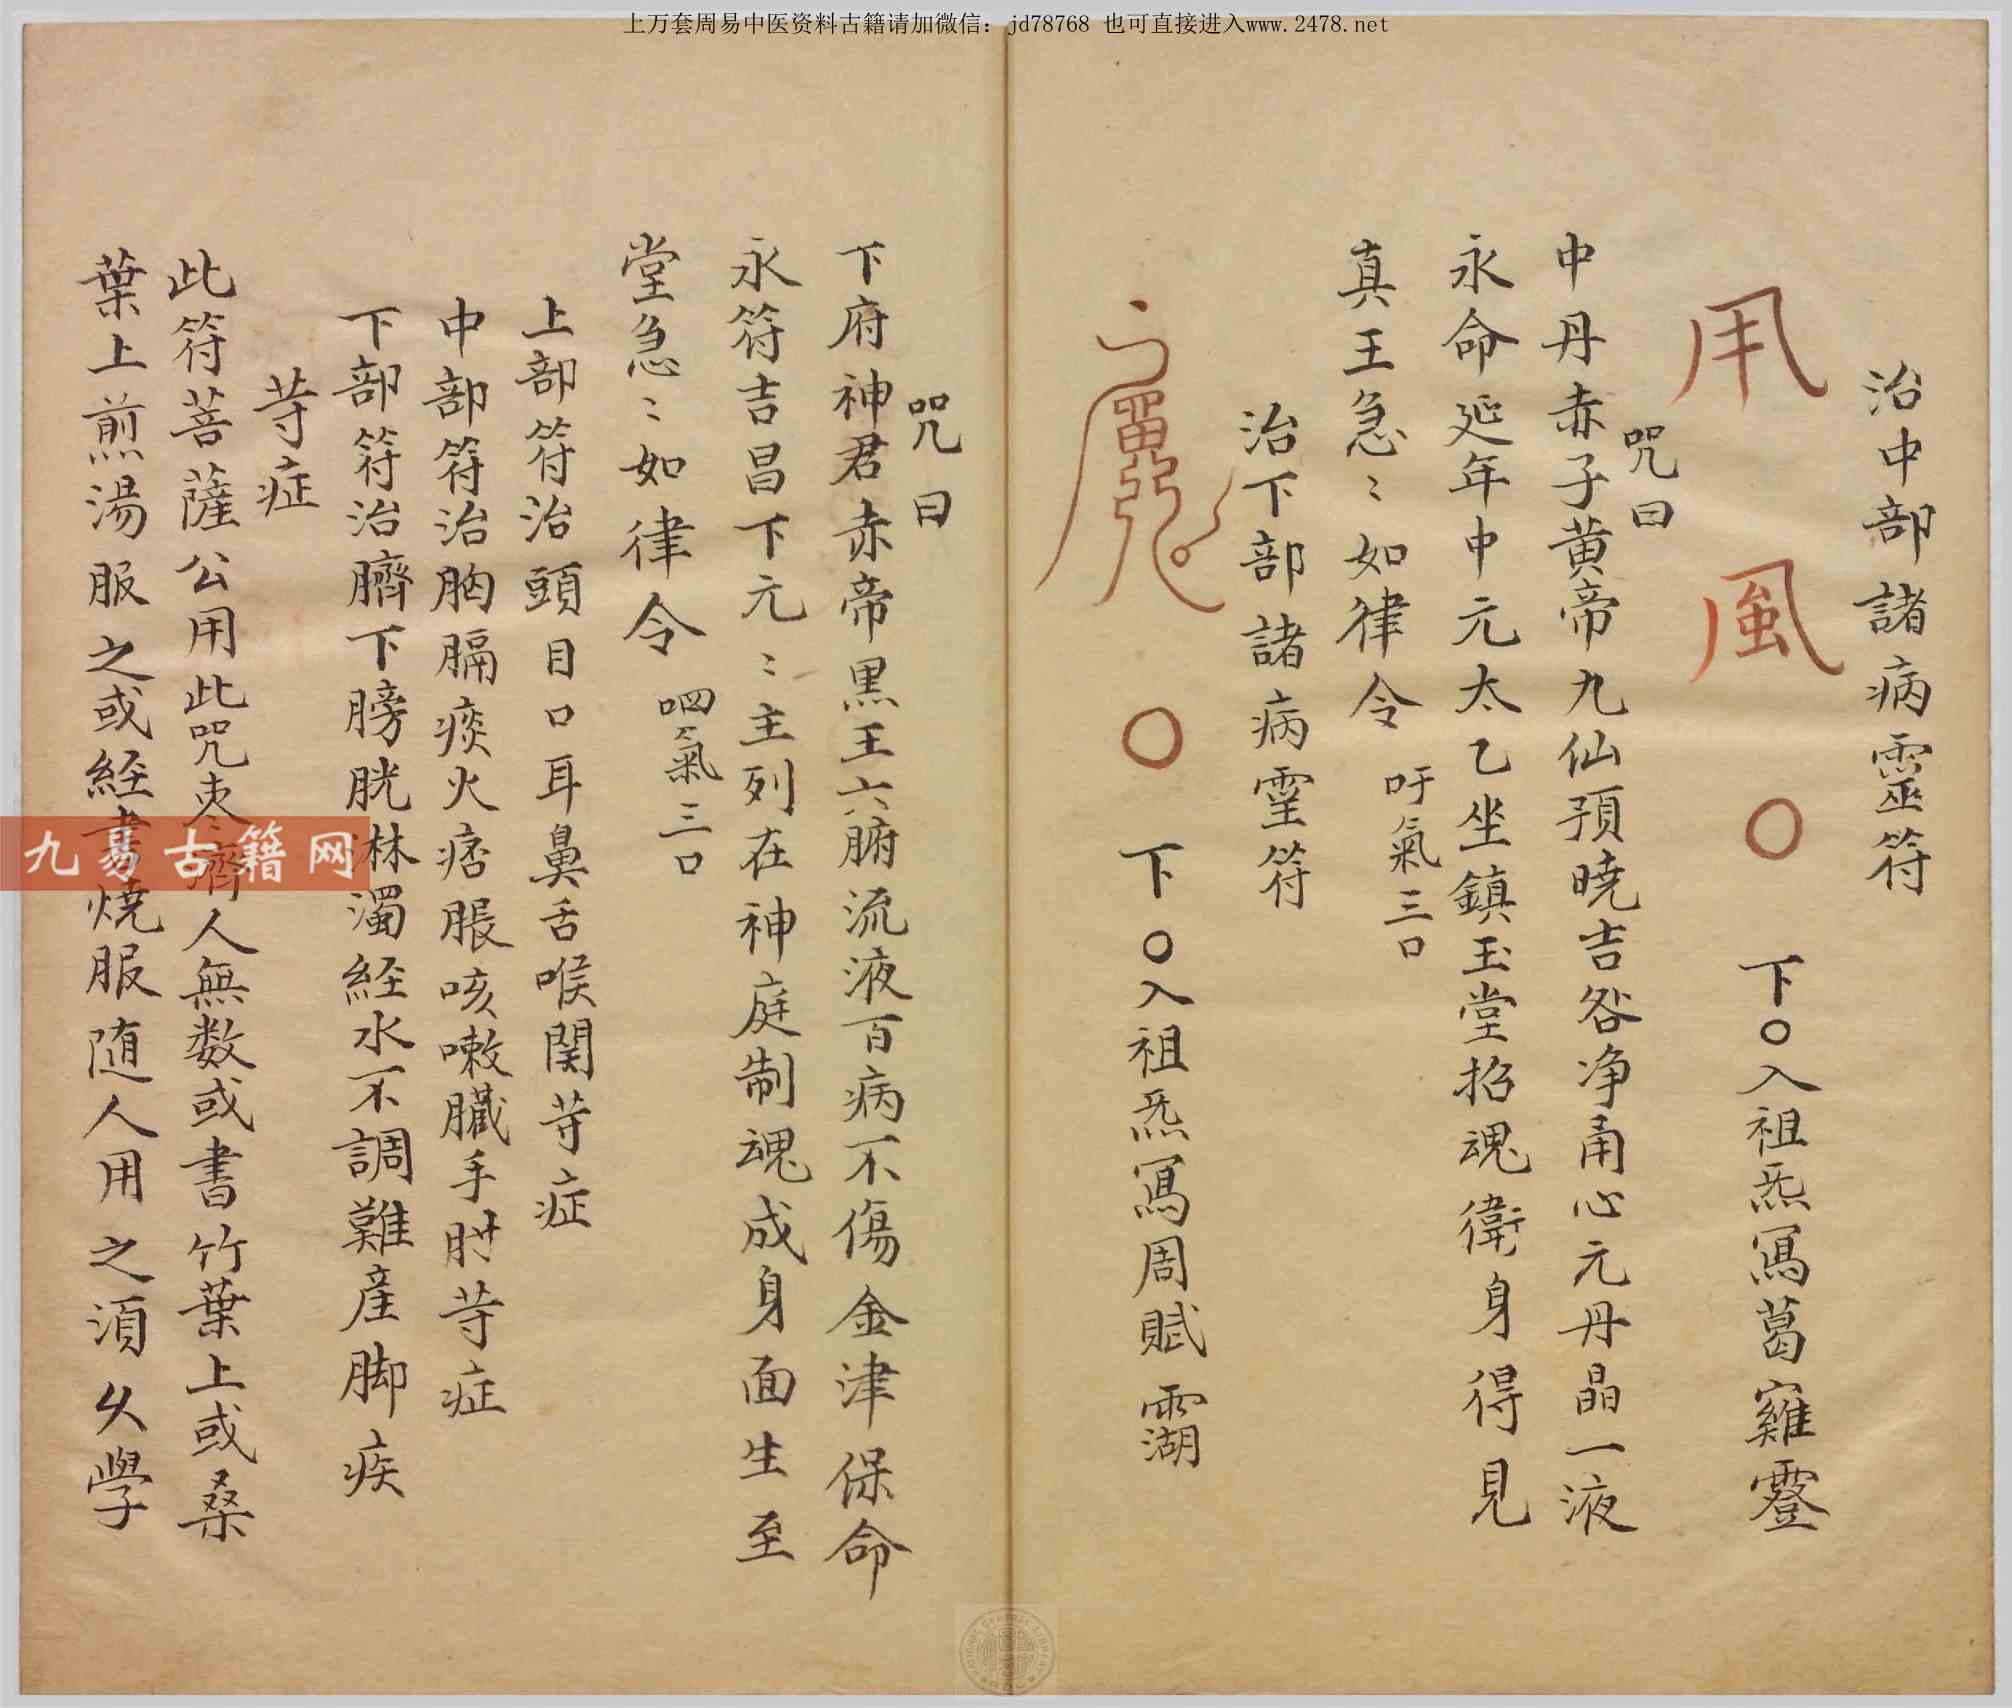 上万套周易中医资料古籍请加微信：jd78768 也可直接进入www.2478.net
治中部諸病靈符
下○入祖炁寫葛雞霯
咒曰
中丹赤子黄帝九仙預曉吉咎净甬心元丹晶一液
永命延年中元太乙坐鎮玉堂招魂衛身得見
真王急〻如律令 吁氣三口
治下部諸病霊符
下○入祖炁寫周賦
咒曰
下府神君赤帝黒王六腑流液百病不傷金津保命
永符吉昌下元〻主列在神庭制魂成身面生至
堂急〻如律令 呬氣三口
上部符治頭目口耳鼻舌喉関等症
中部符治胸膈痰火痞脹咳嗽臟手肘等症
下部符治臍下膀胱淋濁経水不調難產脚疾
等症
此符菩薩公用此咒枣濟人無数或書竹葉上或桑
葉上煎湯服之或経書燒服随人用之須久學
九易古籍网